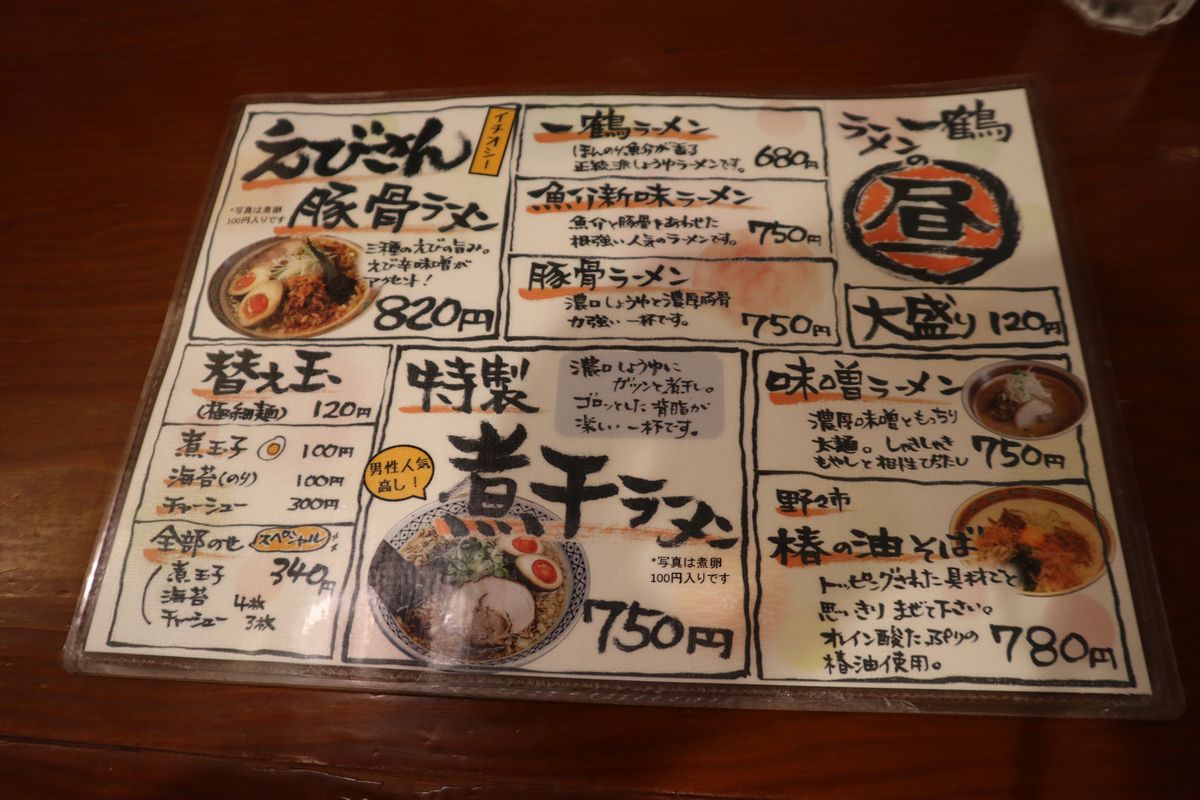 えびさん
イチオシ!
豚骨ラーメン
*写真は煮卵
100円入りです
三種のえびの旨み。
えび辛味噌が
アクセント!
820円
一鶴ラーメン
ほんのり魚介が香る
正統派しょうゆラーメンです。
680円
魚介新味ラーメン
魚介と豚骨をあわせた
根強い人気のラーメンです。
750円
豚骨ラーメン
濃口しょうゆと濃厚豚骨
力強い一杯です。
750円
ラーメン一鶴
の
昼
大盛り 120円
替え玉
(極細麺) 120円
煮玉子 100円
海苔(のり) 100円
チャーシュー 300円
全部のせ スペシャル
340円
煮玉子
海苔 4枚
チャーシュー 3枚
特製
濃口しょうゆに
ガツンと煮干し。
ゴロッとした背脂が
楽しい一杯です。
男性人気
高し!
煮干ラーメン
*写真は煮卵
100円入りです
750円
味噌ラーメン
濃厚味噌ともっちり
太麺。しゃきしゃき
もやしと相性ぴったし
750円
野々市
椿の油そば
トッピングされた具材ごと
思いっきりまぜて下さい。
オレイン酸たっぷりの
椿油使用。
780円